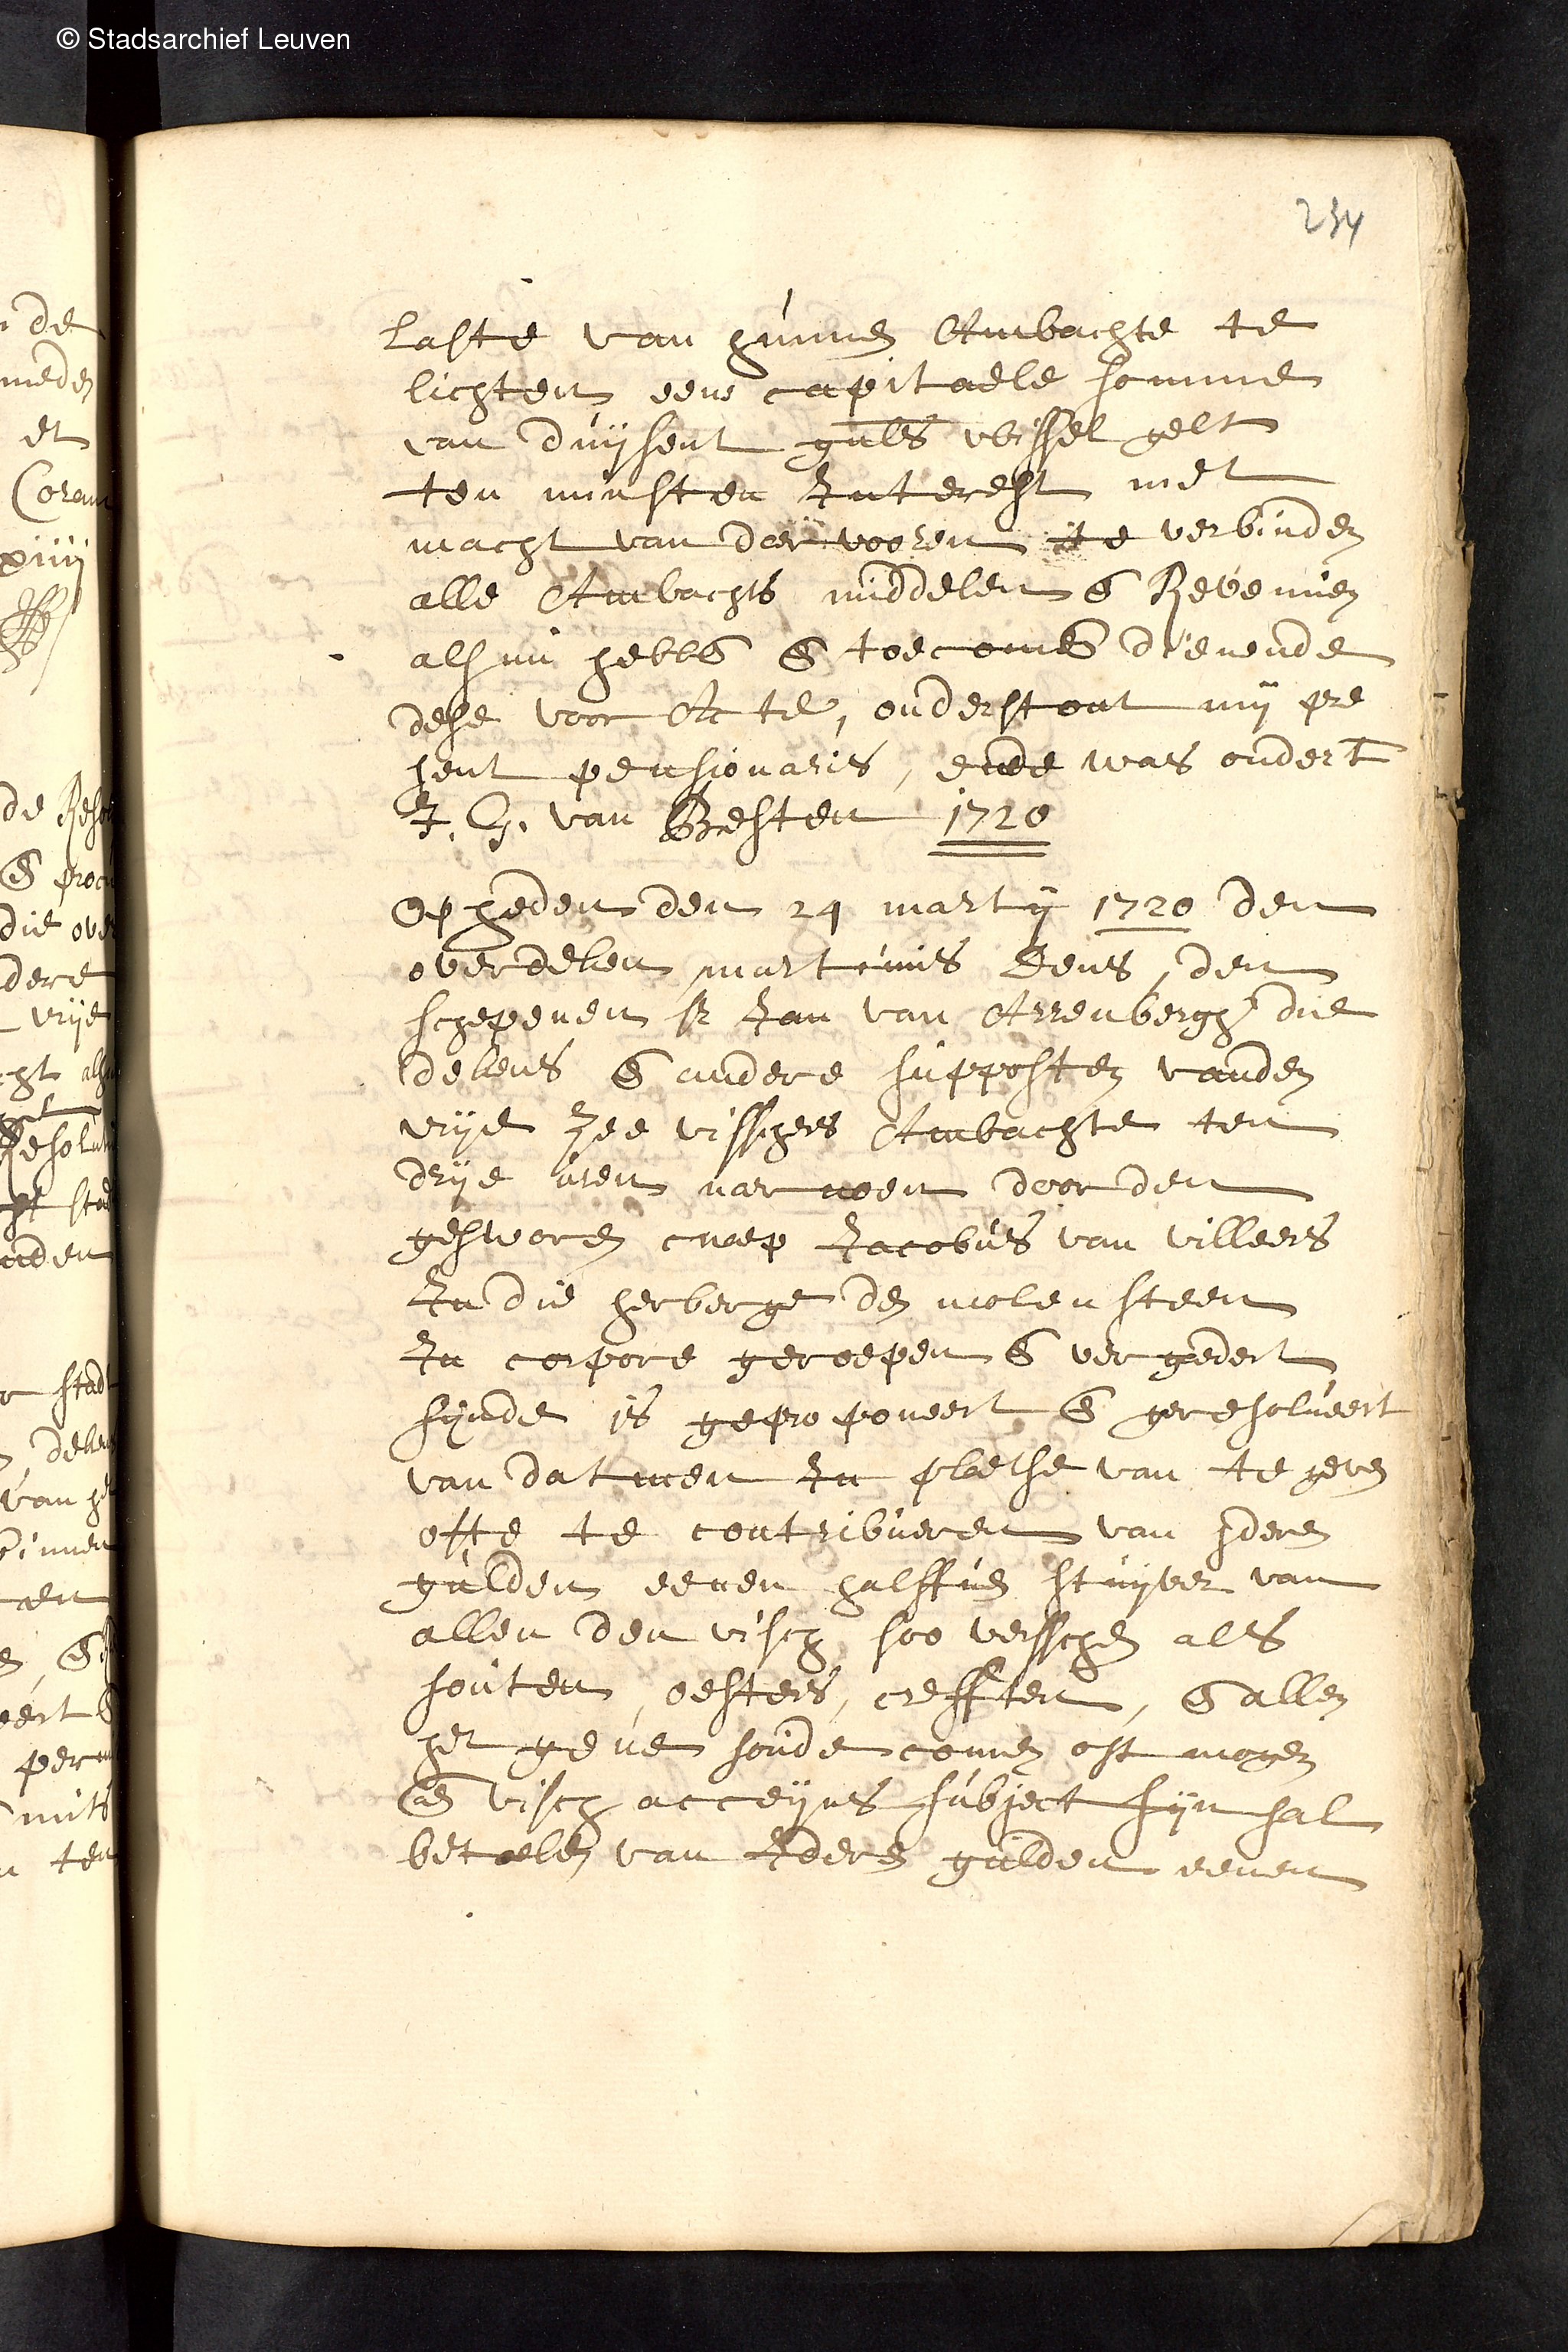 © Stadsarchief Leuven
234
laste van hunnen Ambachte te
lichten eene capitaele somme
van duysent guls wissel gelt
ten minsten Interest met
macht van daer vooren te verbinden
alle Ambachts middelen & Revenuen
alsnu hebb& & toecom& dienende
dese voor Acte, onderstont mij pre
sent pensionaris, ende was ondert
J. G. van Besten 1720
Op heden den 24 marty 1720 den
overdeken martinus Dens, den
schepenen sr Jan van Arrenbergh die
dekens & andere supposten vanden
vrije Zee visschers Ambachte ten
drije uren naer noen door den
gesworen cnaep Jacobus van Villeers
In die herberge den molensteen
In corpore geroepen & vergadert
synde is geproponeert & geresolveert
van datmen In plaetse van te geven
ofte te contribueren van idere
gulden eenen halffven stuyver van
allen den visch soo versschen als
souten, oesters, creften, & allen
het gene soude connen oft mogen
aen visch acceyns subject syn sal
betaelen van Idere gulden eenen